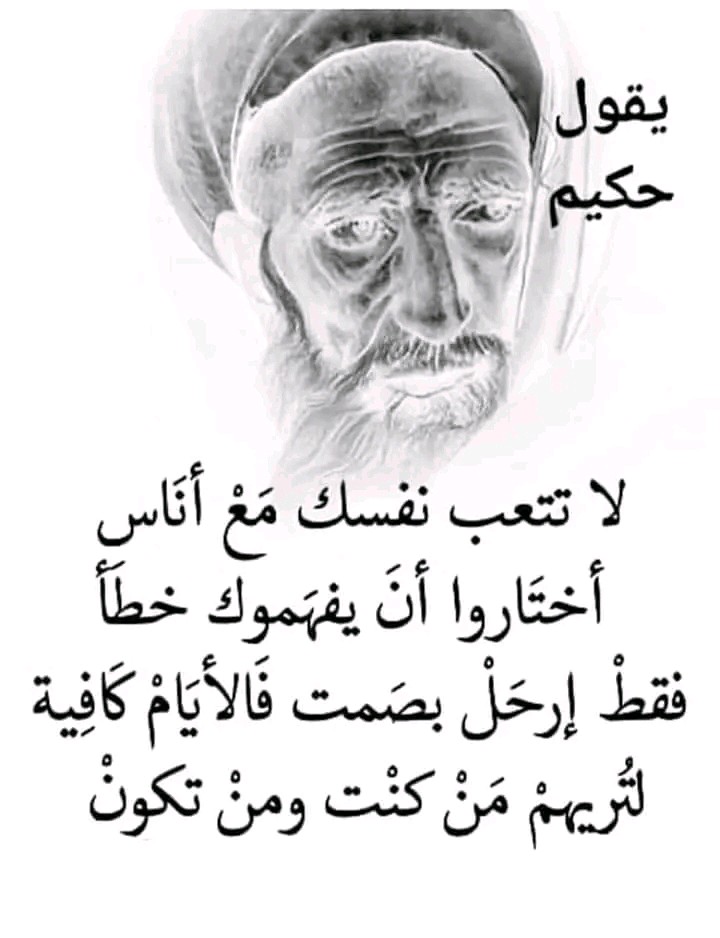 يقول
حكيم
لا تتعب نفسك مَعْ أنَاس
أختَاروا أنَ يفهَموك خطَأ
فقطْ إرحَلْ بصَمت فَالأيَامْ كَافِية
لتُريهمْ مَنْ كنْت ومنْ تكونْ